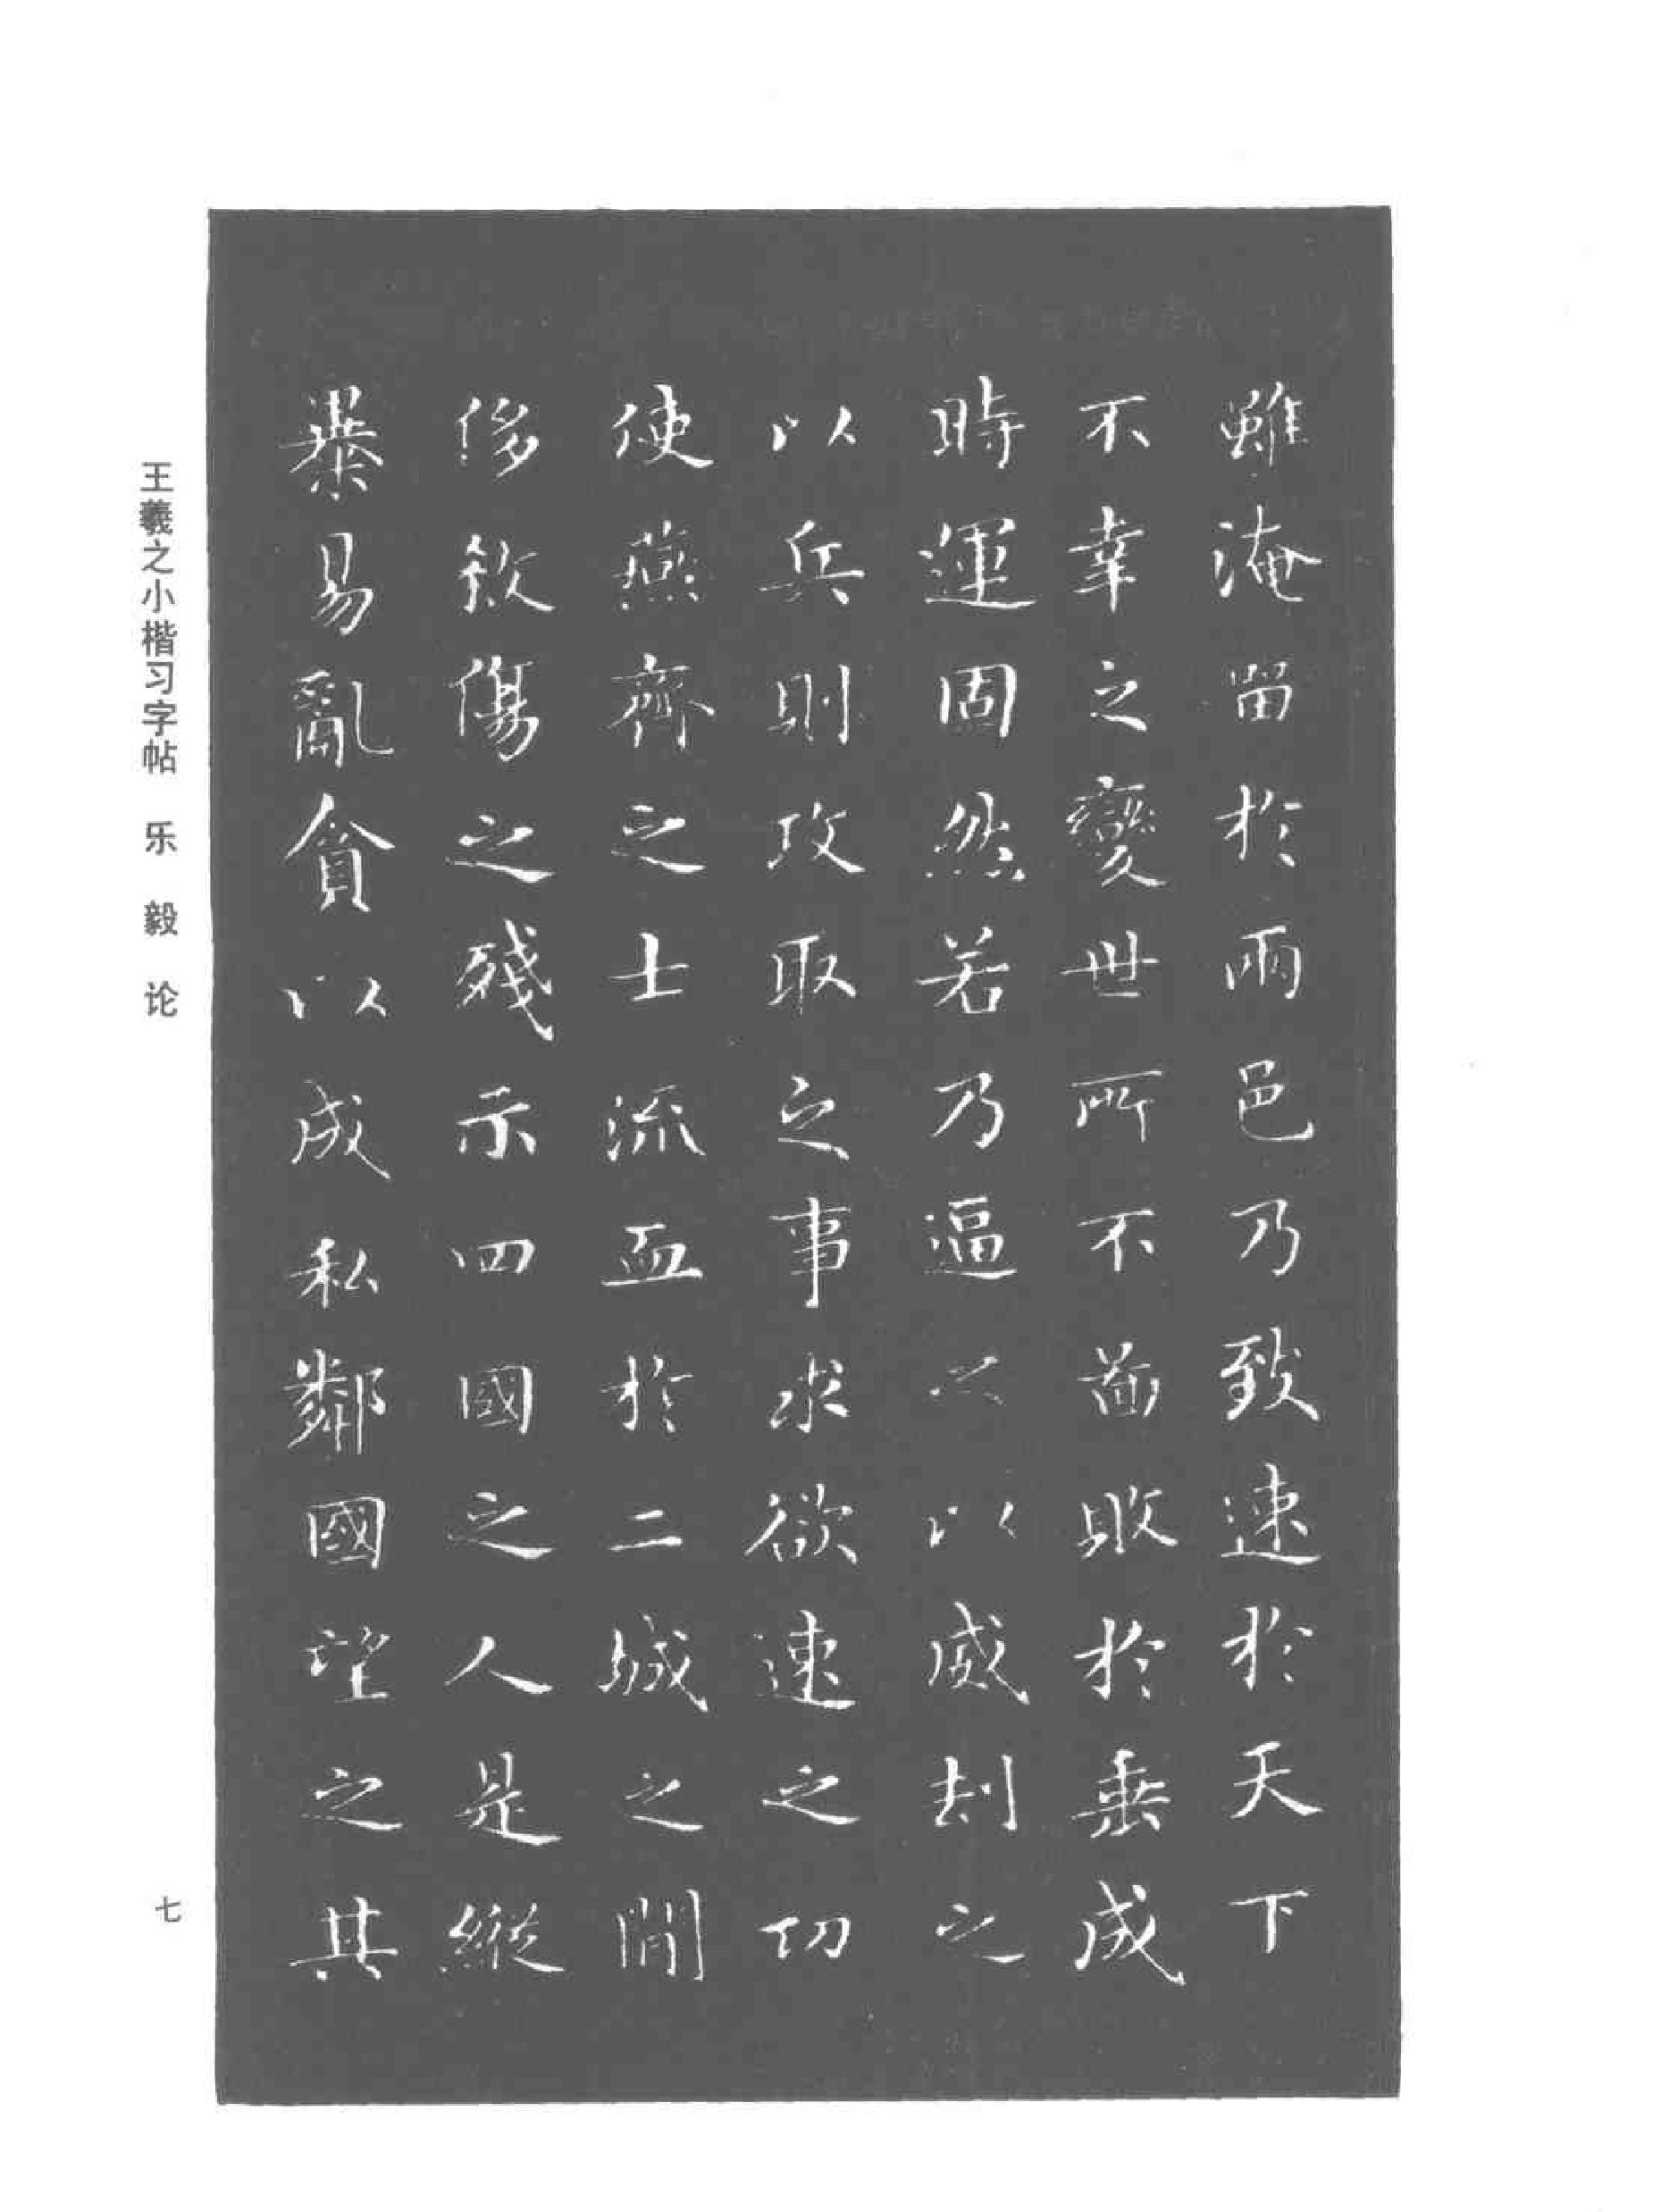 雖淹留於兩邑乃致速於天下
不幸之變世所不啚敗於垂成
時運固然若乃逼之以威刦之
以兵則攻取之事求欲速之功
使燕齊之士流血於二城之間
侈煞傷之殘示四國之人是縱
暴易亂貪以成私鄰國望之其
王羲之小楷习字帖 乐毅论
七